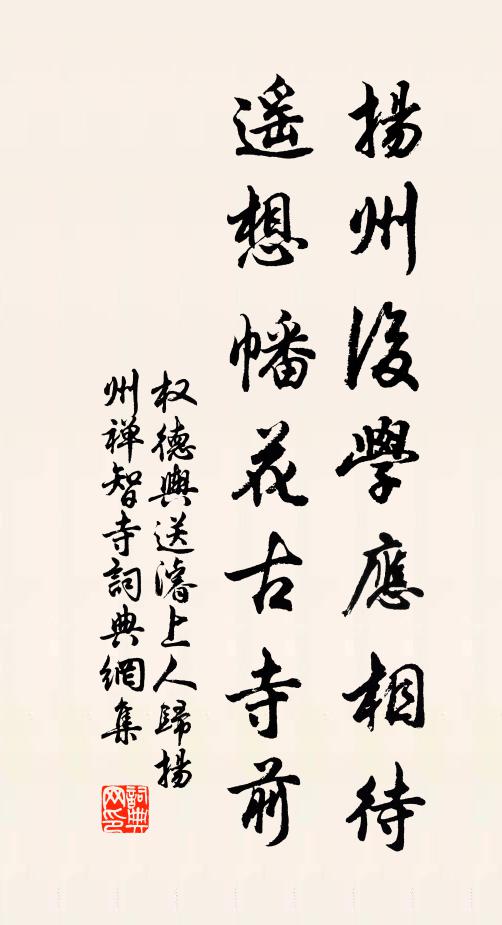 揚州後學應相待
遥想幡花古寺前
权德輿送濬上人歸揚
州禅智寺詞典網集
詞典网印